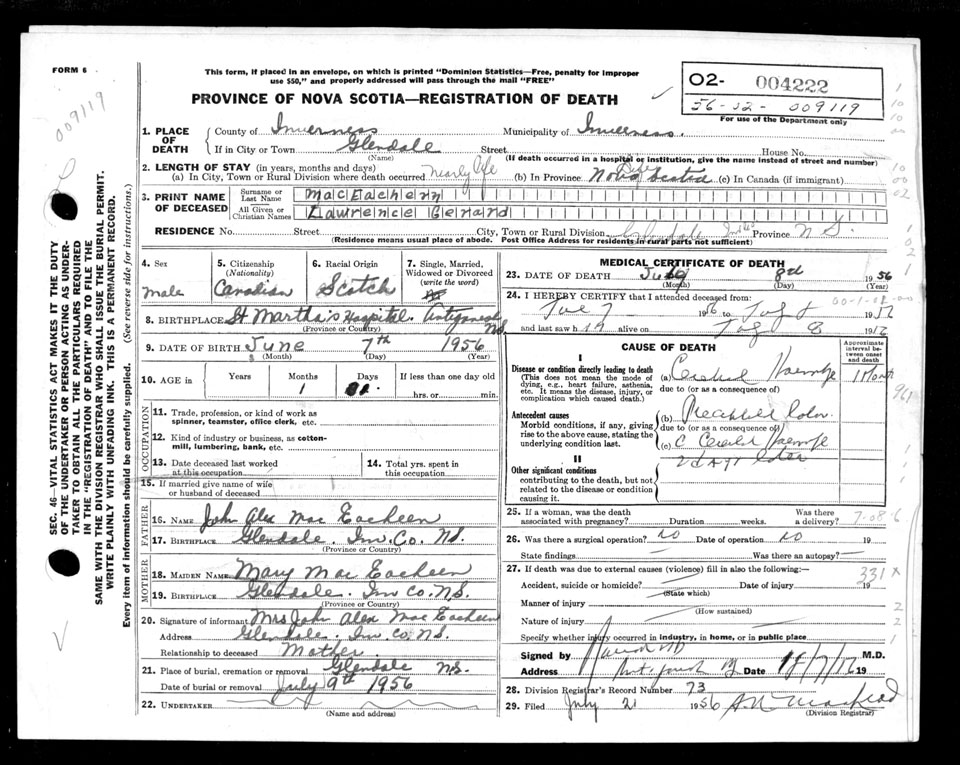 FORM 6
This form, if placed in an envelope, on which is printed "Dominion Statistics—Free, penalty for improper
use $50," and properly addressed will pass through the mail "FREE"
PROVINCE OF NOVA SCOTIA—REGISTRATION OF DEATH
02- 004222
56-02- 009119
For use of the Department only
009119
SEC. 46 VITAL STATISTICS ACT MAKES IT THE DUTY
OF THE UNDERTAKER OR PERSON ACTING AS UNDER-
TAKER TO OBTAIN ALL THE PARTICULARS REQUIRED
IN THE "REGISTRATION OF DEATH" AND TO FILE THE
SAME WITH THE DIVISION REGISTRAR WHO SHALL ISSUE THE BURIAL PERMIT.
WRITE PLAINLY WITH UNFADING INK. THIS IS A PERMANENT RECORD.
Every item of information should be carefully supplied. (See reverse side for instructions.)
1. PLACE OF DEATH
County of Inverness Municipality of Inverness.
If in City or Town Glendale Street House No.
(Name) (If death occurred in a hospital or institution, give the name instead of street and number)
2. LENGTH OF STAY (in years, months and days)
(a) In City, Town or Rural Division where death occurred nearly life (b) In Province Nova Scotia (c) In Canada (if immigrant)
3. PRINT NAME OF DECEASED
Surname or Last Name MacEachern
All Given or Christian Names Lawrence Gerard
RESIDENCE No. Street City, Town or Rural Division Glendale Province N S.
(Residence means usual place of abode. Post Office Address for residents in rural parts not sufficient)
4. Sex
male
5. Citizenship
(Nationality)
Canadian
6. Racial Origin
Scotch
7. Single, Married,
Widowed or Divorced
(write the word)
8. BIRTHPLACE St Martha's Hospital. Antigonish NS.
(Province or Country)
9. DATE OF BIRTH June 7th 1956
(Month) (Day) (Year)
10. AGE in
Years Months Days If less than one day old
1
hrs. or min.
OCCUPATION
11. Trade, profession, or kind of work as
spinner, teamster, office clerk, etc.
12. Kind of industry or business, as cotton-
mill, lumbering, bank, etc.
13. Date deceased last worked
at this occupation
14. Total yrs. spent in
this occupation
15. If married give name of wife
or husband of deceased
FATHER
16. NAME John Alex Mac Eachern
17. BIRTHPLACE Glendale. Inv. Co. NS.
(Province or Country)
MOTHER
18. MAIDEN NAME Mary Mac Eachern
19. BIRTHPLACE Glendale. Inv co. NS.
(Province or Country)
20. Signature of informant Mrs John Alex Mac Eachern
Address Glendale. Inv co. NS.
Relationship to deceased Mother.
21. Place of burial, cremation or removal Glendale NS.
Date of burial or removal July 9th 1956
22. UNDERTAKER
(Name and address)
MEDICAL CERTIFICATE OF DEATH
23. DATE OF DEATH July 8th 1956
(Month) (Day) (Year)
24. I HEREBY CERTIFY that I attended deceased from:
7 1956 to
and last saw h alive on 8
CAUSE OF DEATH
Approximate interval between onset and death
I
Disease or condition directly leading to death
(This does not mean the mode of
dying, e.g., heart failure, asthenia,
etc. It means the disease, injury, or
complication which caused death.)
(a) Cerebral
1 Month
due to (or as a consequence of)
Antecedent causes
Morbid conditions, if any, giving
rise to the above cause, stating the
underlying condition last.
(b)
due to (or as a consequence of)
(c)
II
Other significant conditions
contributing to the death, but not
related to the disease or condition
causing it.
25. If a woman, was the death
associated with pregnancy? Duration weeks. Was there a delivery?
26. Was there a surgical operation? no Date of operation no 19
State findings Was there an autopsy?
27. If death was due to external causes (violence) fill in also the following:—
331 x
Accident, suicide or homicide? Date of injury 19
(State which)
Manner of injury
(How sustained)
Nature of injury
Specify whether injury occurred in industry, in home, or in public place
Signed by M.D.
Address Date 19
28. Division Registrar's Record Number 73
29. Filed July 21 1956
(Division Registrar)